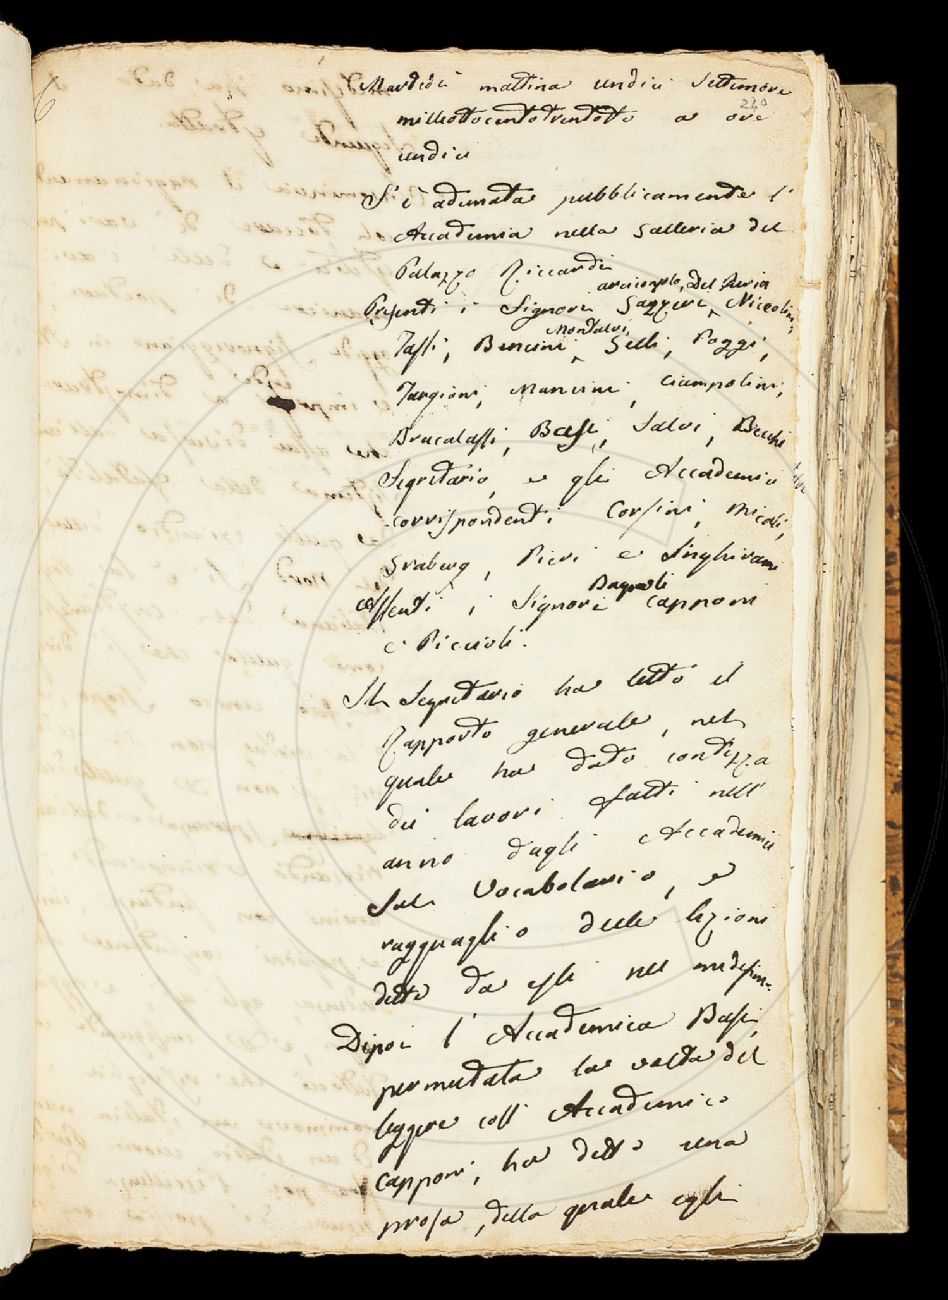 Martedì mattina undici Settembre
210
milleottocentotrentotto a ore
undici
S'è adunata pubblicamente l'
Accademia nella Galleria del
Palazzo Riccardi
arciconsolo, Del Furia
Presenti i Signori Gazzeri, Niccolini,
Montalvi,
Tassi, Bencini, Gelli, Poggi,
Targioni, Mancini, Ciampolini,
Brucalassi, Basi, Salvi, Becchi
Segretario, e gli Accademici
corrispondenti Corsini, Micali,
Graberg, Pieri e Inghirami
Bagnoli
Assenti i Signori Capponi
e Piccioli.
Il Segretario ha letto il
Rapporto generale, nel
quale ha dato contezza
dei lavori fatti nell'
anno dagli Accademici
sul Vocabolario, e
ragguaglio delle lezioni
dette da essi nel medesim.
Dipoi l'Accademico Basi,
permutata la volta del
leggere coll'Accademico
Capponi, ha detto una
prosa, della quale egli